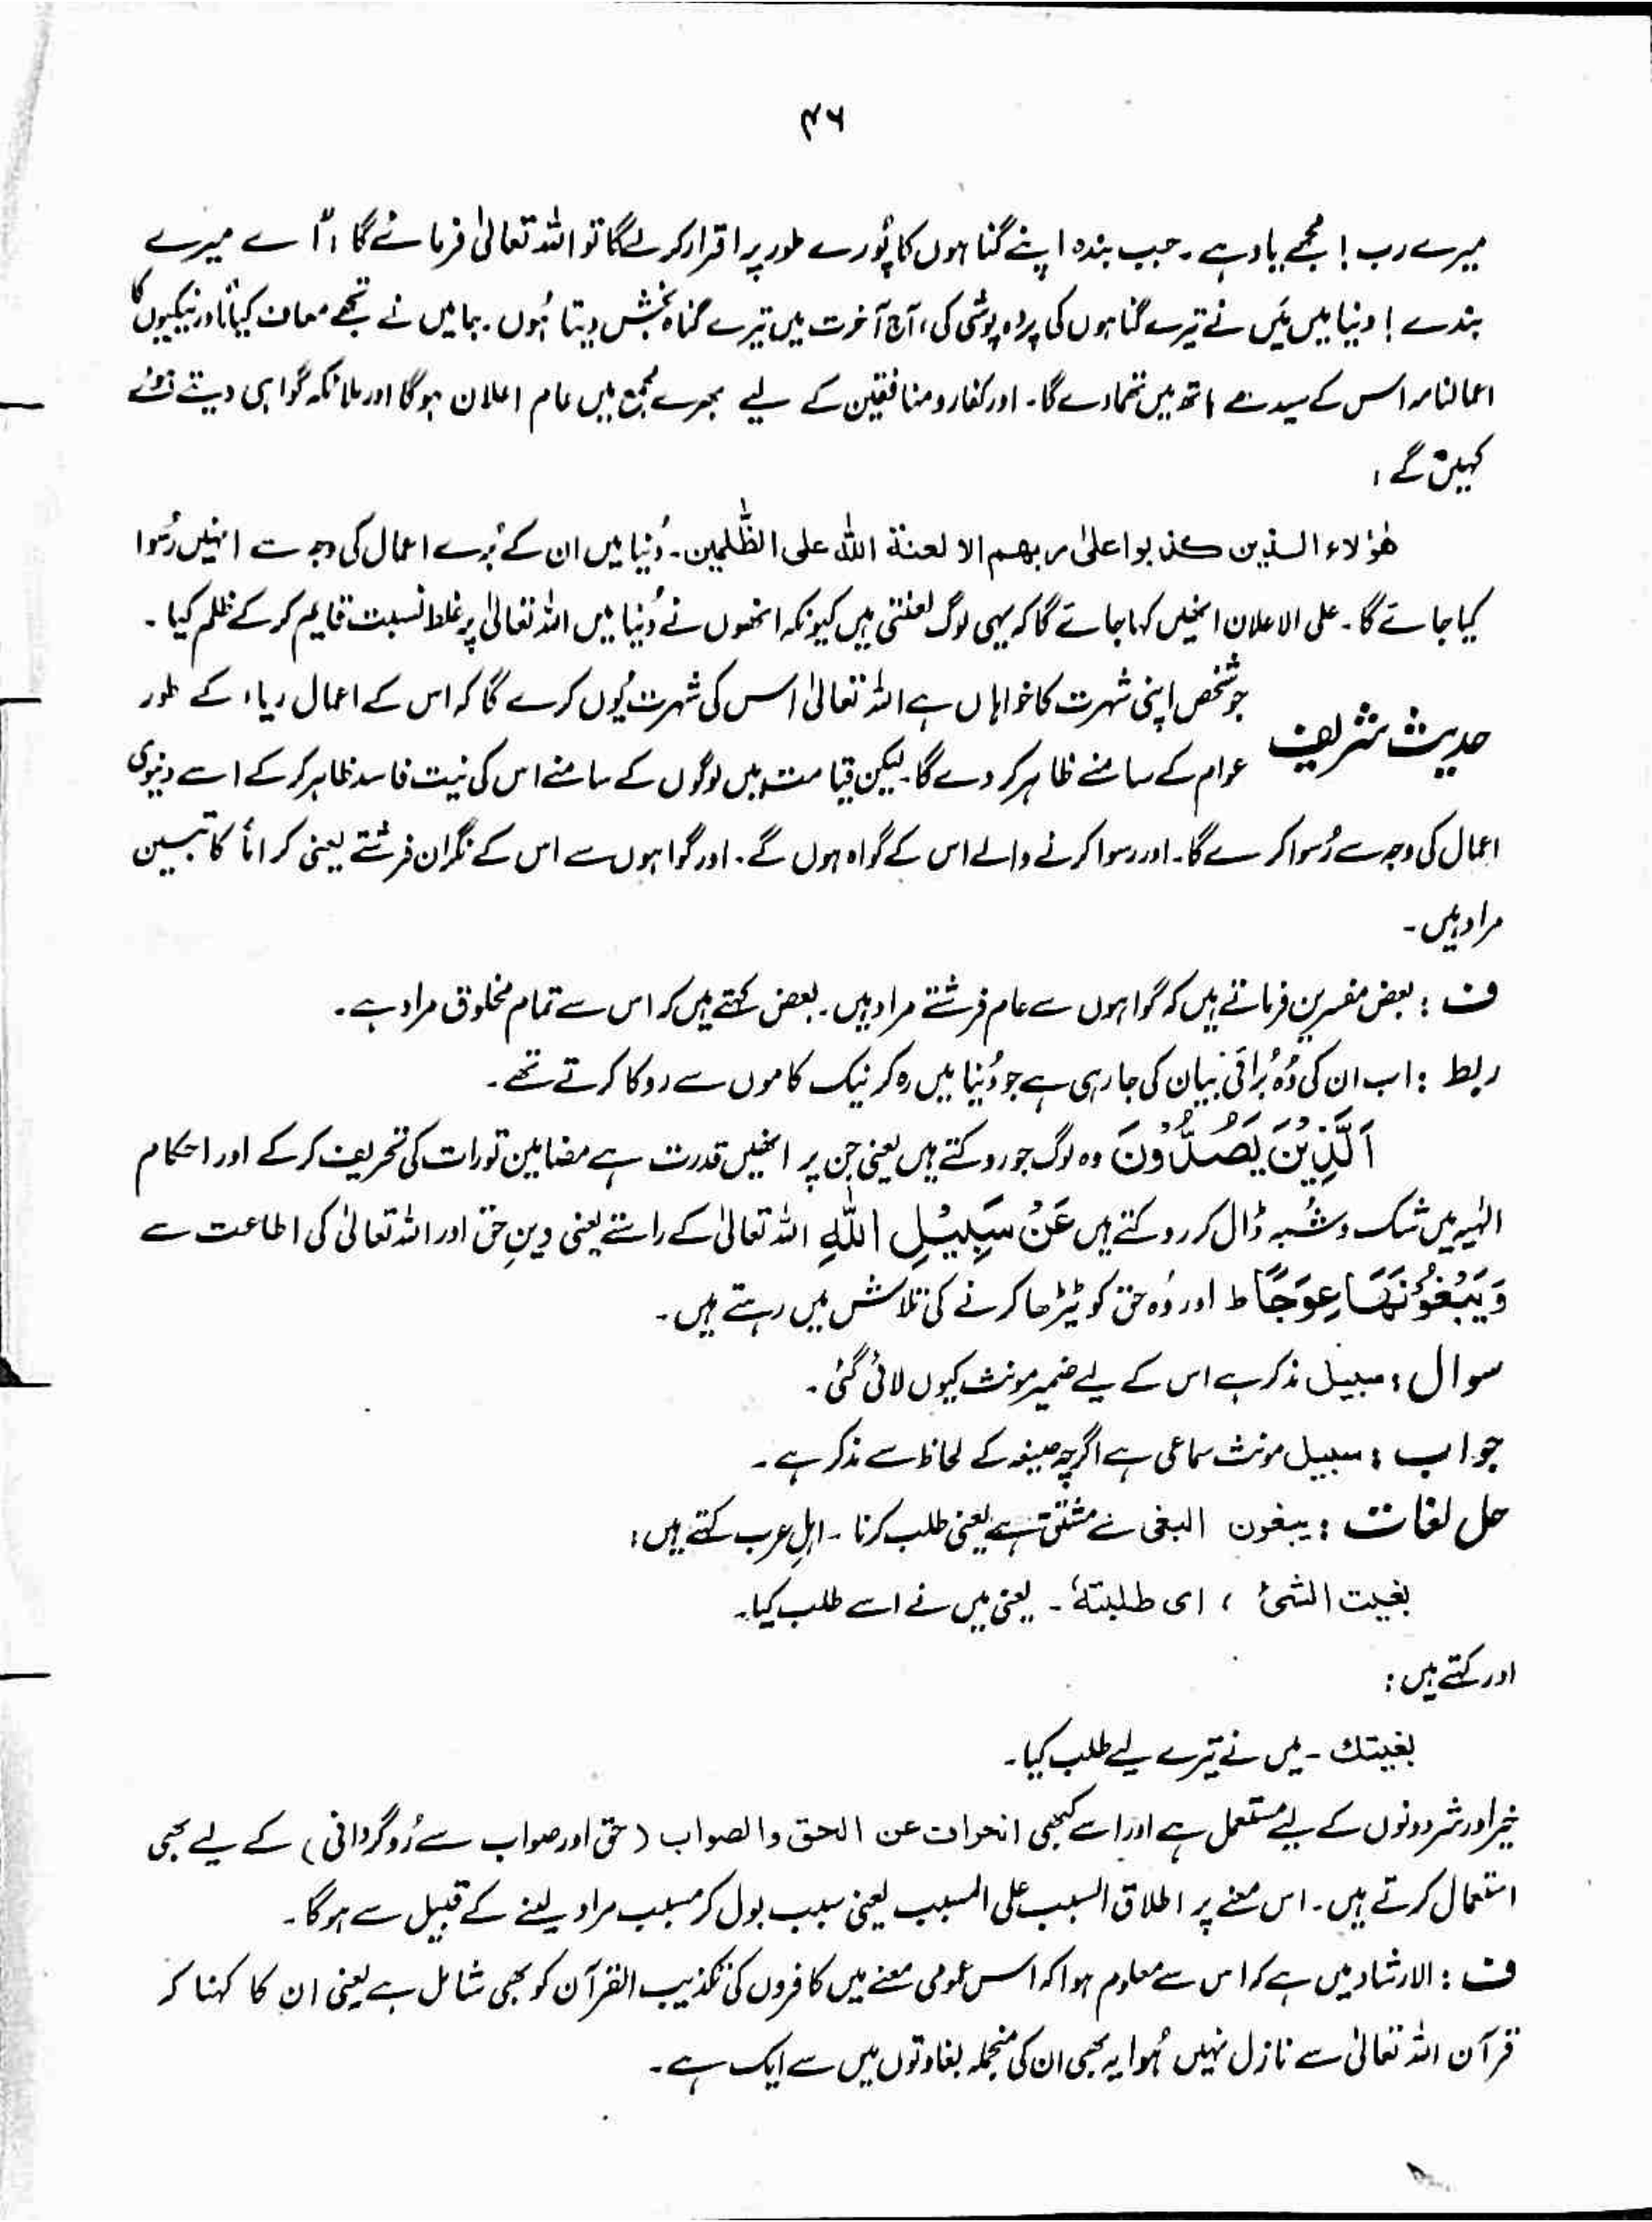 ۴۶
میرے رب ! مجھے یاد ہے ۔ جب بندہ اپنے گناہوں کا پُورے طور پر اقرار کر لے گا تو اللہ تعالیٰ فرمائے گا : "اے میرے
بندے ! دنیا میں مَیں نے تیرے گناہوں کی پردہ پوشی کی ، آج آخرت میں تیرے گناہ بخش دیتا ہُوں ۔ جا میں نے تجھے معاف کیا" اور نیکیوں کا
اعمالنامہ اس کے سیدھے ہاتھ میں تھما دے گا ۔ اور کفار و منافقین کے لیے بھرے مجمع میں عام اعلان ہوگا اور ملائکہ گواہی دیتے ہوئے
کہیں گے :
ھٰؤلاء الذین کذبوا علیٰ ربھم الا لعنۃ اللہ علی الظّٰلمین ۔ دُنیا میں ان کے بُرے اعمال کی وجہ سے انہیں رُسوا
کیا جائے گا ۔ علی الاعلان انھیں کہا جائے گا کہ یہی لوگ لعنتی ہیں کیونکہ انھوں نے دُنیا میں اللہ تعالیٰ پر غلط نسبت قایم کرکے ظلم کیا ۔
حدیث شریف جو شخص اپنی شہرت کا خواہاں ہے اللہ تعالیٰ اس کی شہرت یُوں کرے گا کہ اس کے اعمال ریاء کے طور
عوام کے سامنے ظاہر کر دے گا۔ لیکن قیامت میں لوگوں کے سامنے اس کی نیت فاسد ظاہر کرکے اسے دنیوی
اعمال کی وجہ سے رُسوا کرے گا ۔ اور رسوا کرنے والے اس کے گواہ ہوں گے ۔ اور گواہوں سے اس کے نگران فرشتے یعنی کراماً کاتبین
مراد ہیں ۔
ف : بعض مفسرین فرماتے ہیں کہ گواہوں سے عام فرشتے مراد ہیں ۔ بعض کہتے ہیں کہ اس سے تمام مخلوق مراد ہے ۔
ربط : اب ان کی وُہ بُرائی بیان کی جا رہی ہے جو دُنیا میں رہ کر نیک کاموں سے روکا کرتے تھے ۔
اَلَّذِیْنَ یَصُدُّوْنَ وہ لوگ جو روکتے ہیں یعنی جن پر انھیں قدرت ہے مضامین تورات کی تحریف کرکے اور احکام
الٰہیہ میں شک و شُبہ ڈال کر روکتے ہیں عَنْ سَبِیْلِ اللّٰہِ اللہ تعالیٰ کے راستے یعنی دینِ حق اور اللہ تعالیٰ کی اطاعت سے
وَیَبْغُوْنَھَا عِوَجًا ط اور وُہ حق کو ٹیڑھا کرنے کی تلاش میں رہتے ہیں ۔
سوال : سبیل مذکر ہے اس کے لیے ضمیر مونث کیوں لائی گئی ۔
جواب : سبیل مونث سماعی ہے اگرچہ صیغہ کے لحاظ سے مذکر ہے ۔
حل لغات : یبغون البغی سے مشتق ہے یعنی طلب کرنا ۔ اہلِ عرب کہتے ہیں :
بغیت الشئ ، ای طلبتہٗ ۔ یعنی میں نے اسے طلب کیا ۔
اور کہتے ہیں :
بغیتك ۔ میں نے تیرے لیے طلب کیا ۔
خیر اور شر دونوں کے لیے مستعمل ہے اور اسے کبھی انحراف عن الحق والصواب ( حق اور صواب سے رُوگردانی ) کے لیے بھی
استعمال کرتے ہیں ۔ اس معنے پر اطلاق السبب علی المسبب یعنی سبب بول کر مسبب مراد لینے کے قبیل سے ہوگا ۔
ف : الارشاد میں ہے کہ اس سے معلوم ہوا کہ اس عمومی معنے میں کافروں کی تکذیب القرآن کو بھی شامل ہے یعنی ان کا کہنا کہ
قرآن اللہ تعالیٰ سے نازل نہیں ہُوا یہ بھی ان کی منجملہ بغاوتوں میں سے ایک ہے ۔